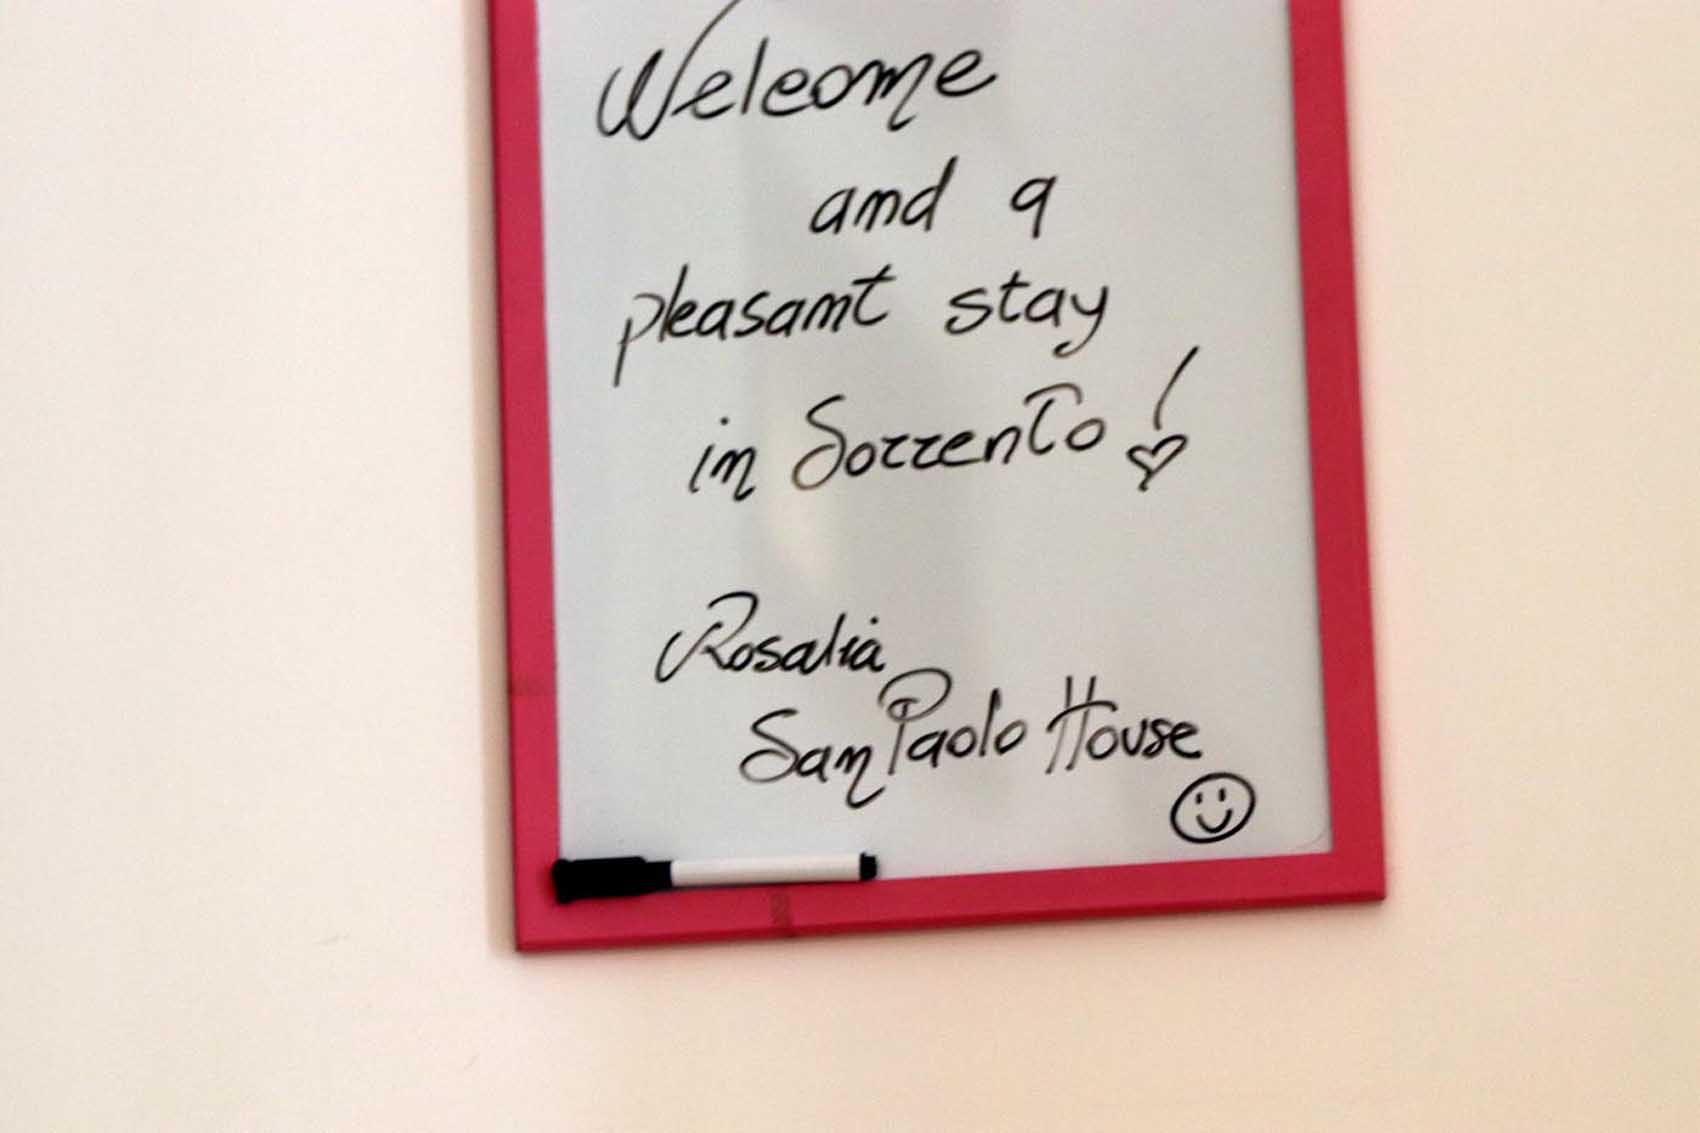 Welcome
and a
pleasant stay
in Sorrento!
Rosalia
San Paolo House